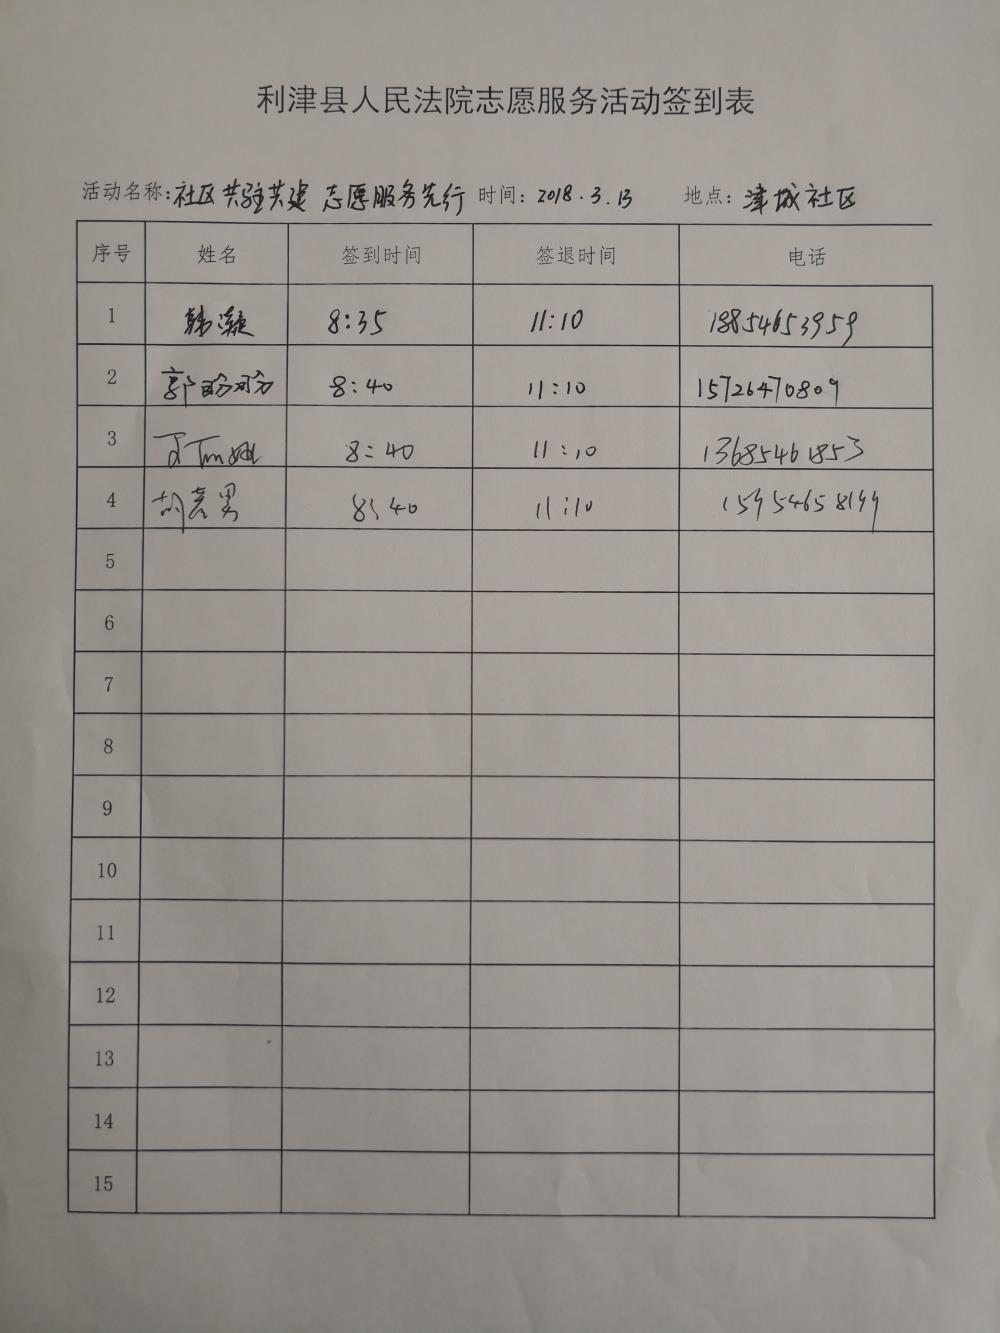 利津县人民法院志愿服务活动签到表
活动名称:社区共驻共建 志愿服务先行 时间:2018.3.13 地点:津城社区
序号 姓名 签到时间 签退时间 电话
1 韩凝 8:35 11:10 18854653959
2 郭盼盼 8:40 11:10 15726470809
3 8:40 11:10 13685461853
4 胡亮男 8:40 11:10 15954658199
5
6
7
8
9
10
11
12
13
14
15